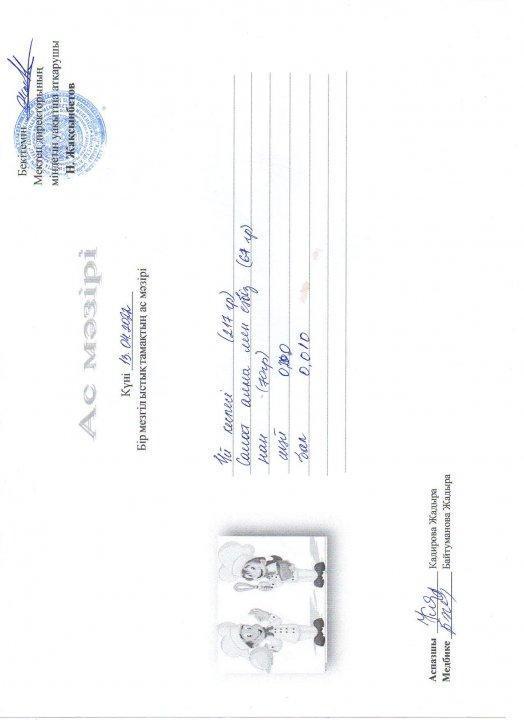 Бекітемін
Мектеп директорының
міндетін уақытша атқарушы
Н. Жақсынбетов
Ас мәзірі
Күні 13.04.2022
Бір мезгіл ыстық тамақтың ас мәзірі
Үй кеспесі (217 гр)
Салат алма мен сәбіз (67 гр)
нан - (70гр)
шәй 0,200
бал 0,010
Аспазшы Кадирова Жадыра
Медбике Байтуманова Жадыра